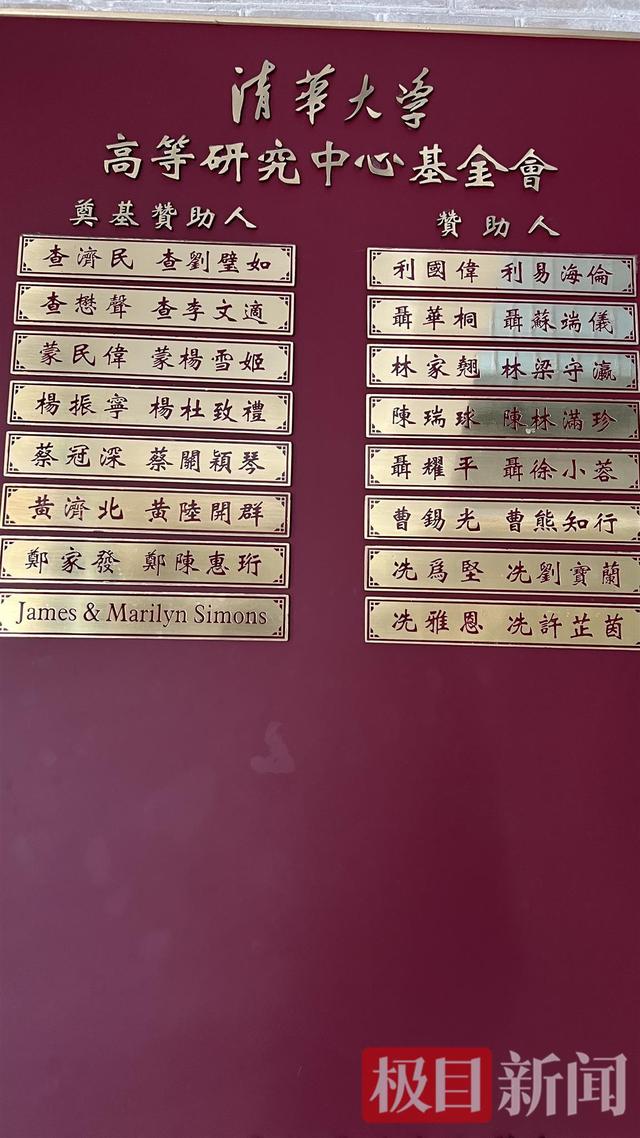 清華大学
高等研究中心基金會
奠基贊助人
查濟民 查劉璧如
查懋聲 查李文適
蒙民偉 蒙楊雪姬
楊振寧 楊杜致禮
蔡冠深 蔡關穎琴
黃濟北 黃陸開群
鄭家發 鄭陳惠珩
James & Marilyn Simons
贊助人
利國偉 利易海倫
聶華桐 聶蘇端儀
林家翹 林梁守瀛
陳瑞球 陳林滿珍
聶耀平 聶徐小蓉
曹錫光 曹熊知行
冼爲堅 冼劉寶蘭
冼雅恩 冼許芷茵
极目新闻